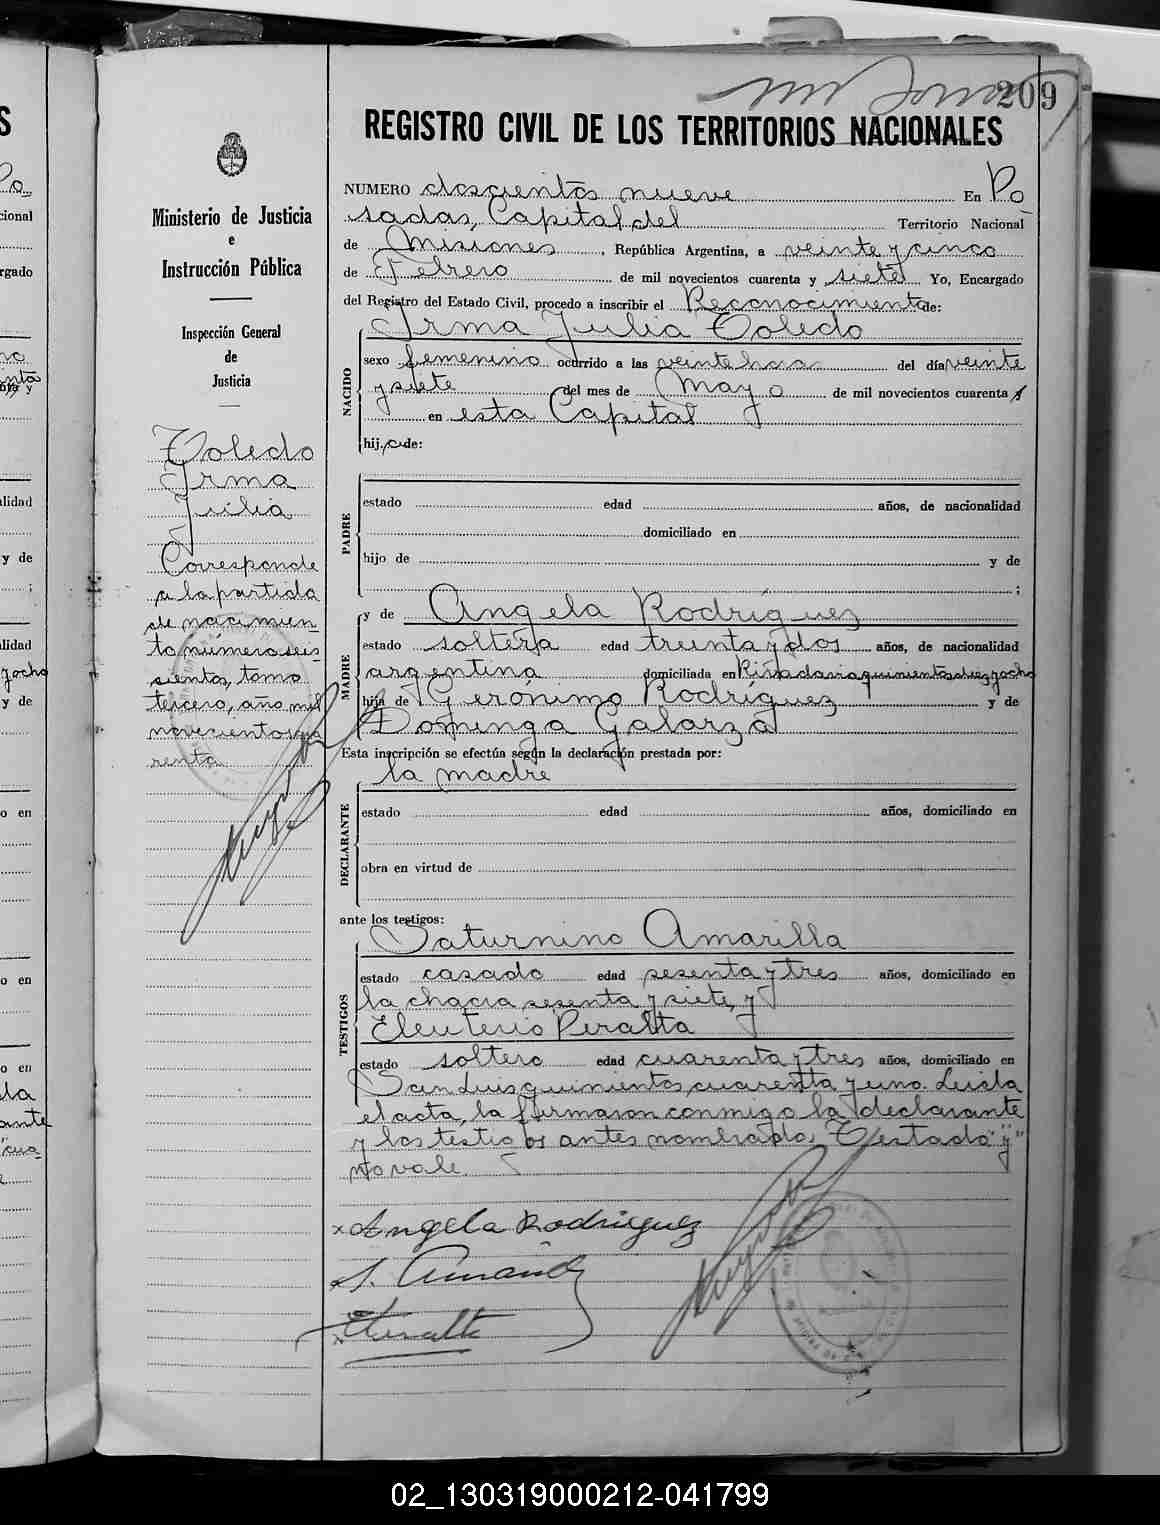 209
REGISTRO CIVIL DE LOS TERRITORIOS NACIONALES
Ministerio de Justicia
e
Instrucción Pública
Inspección General
de
Justicia
Toledo
Irma
Julia
Corresponde
a la partida
de nacimien-
to número seis
cientos, tomo
tercero, año mil
novecientos cua
renta
NUMERO doscientos nueve En Po
sadas, Capital del Territorio Nacional
de Misiones, República Argentina, a veinte y cinco
de Febrero de mil novecientos cuarenta y siete Yo, Encargado
del Registro del Estado Civil, procedo a inscribir el Reconocimiento de:
Irma Julia Toledo
NACIDO
sexo femenino ocurrido a las veinte horas del día veinte
y siete del mes de Mayo de mil novecientos cuarenta y
en esta Capital
hij a de:
PADRE
estado edad años, de nacionalidad
domiciliado en
hijo de y de
;
MADRE
y de Angela Rodríguez
estado soltera edad treinta y dos años, de nacionalidad
argentina domiciliada en Rivadavia quinientos diez y ocho
hija de Gerónimo Rodríguez y de
Dominga Galarza
Esta inscripción se efectúa según la declaración prestada por:
la madre
DECLARANTE
estado edad años, domiciliado en
obra en virtud de
ante los testigos:
TESTIGOS
Saturnino Amarilla
estado casado edad sesenta y tres años, domiciliado en
la chacra sesenta y siete, y
Eleuterio Peralta
estado soltero edad cuarenta y tres años, domiciliado en
San Luis quinientos cuarenta y uno. Leida
el acta, la firmaron conmigo la declarante
y los testigos antes nombrados. Testado: "y"
no vale.
x Angela Rodriguez
S. Amarilla
EPeralta
02_130319000212-041799